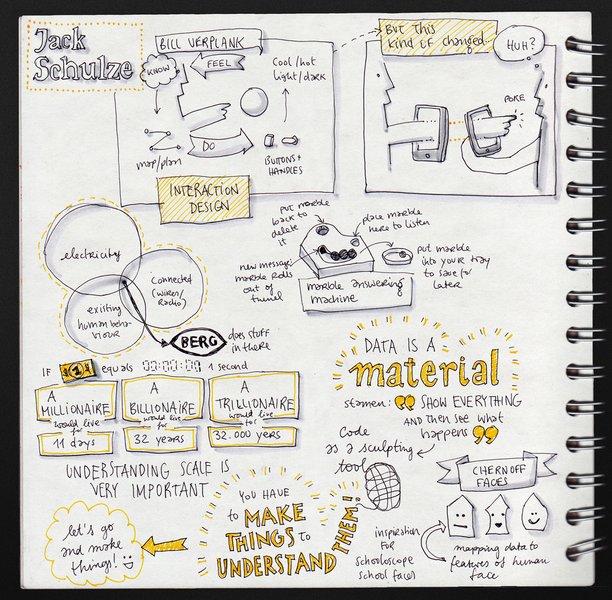 Jack
Schulze
BILL VERPLANK
KNOW
FEEL
Cool/hot
light/dark
map/plan
DO
BUTTONS+
HANDLES
INTERACTION
DESIGN
But this
kind of changed..
HUH?
POKE
electricity
connected
(wires/
Radio)
existing
human beha-
viour
BERG
does stuff
in there
put marble
back to
delete
it
place marble
here to listen
new message:
marble rolls
out of
tunnel
put marble
into your tray
to save for
later
marble answering
machine
IF 1 equals 00:00:01 1 second
A
MILLIONAIRE
would live
for
11 days
A
BILLIONAIRE
would live
for
32 years
A
TRILLIONAIRE
would live
for
32.000 yers
UNDERSTANDING SCALE IS
VERY IMPORTANT
DATA IS A
material
stamen: "SHOW EVERYTHING
AND then see what
happens"
Code
as a sculpting
tool
CHERNOFF
FACES
mapping data to
features of human
face
inspiration
FOR
schooloscope
school faces
YOU HAVE
to MAKE
THINGS to
UNDERSTAND
THEM!
let's go
and make
things!